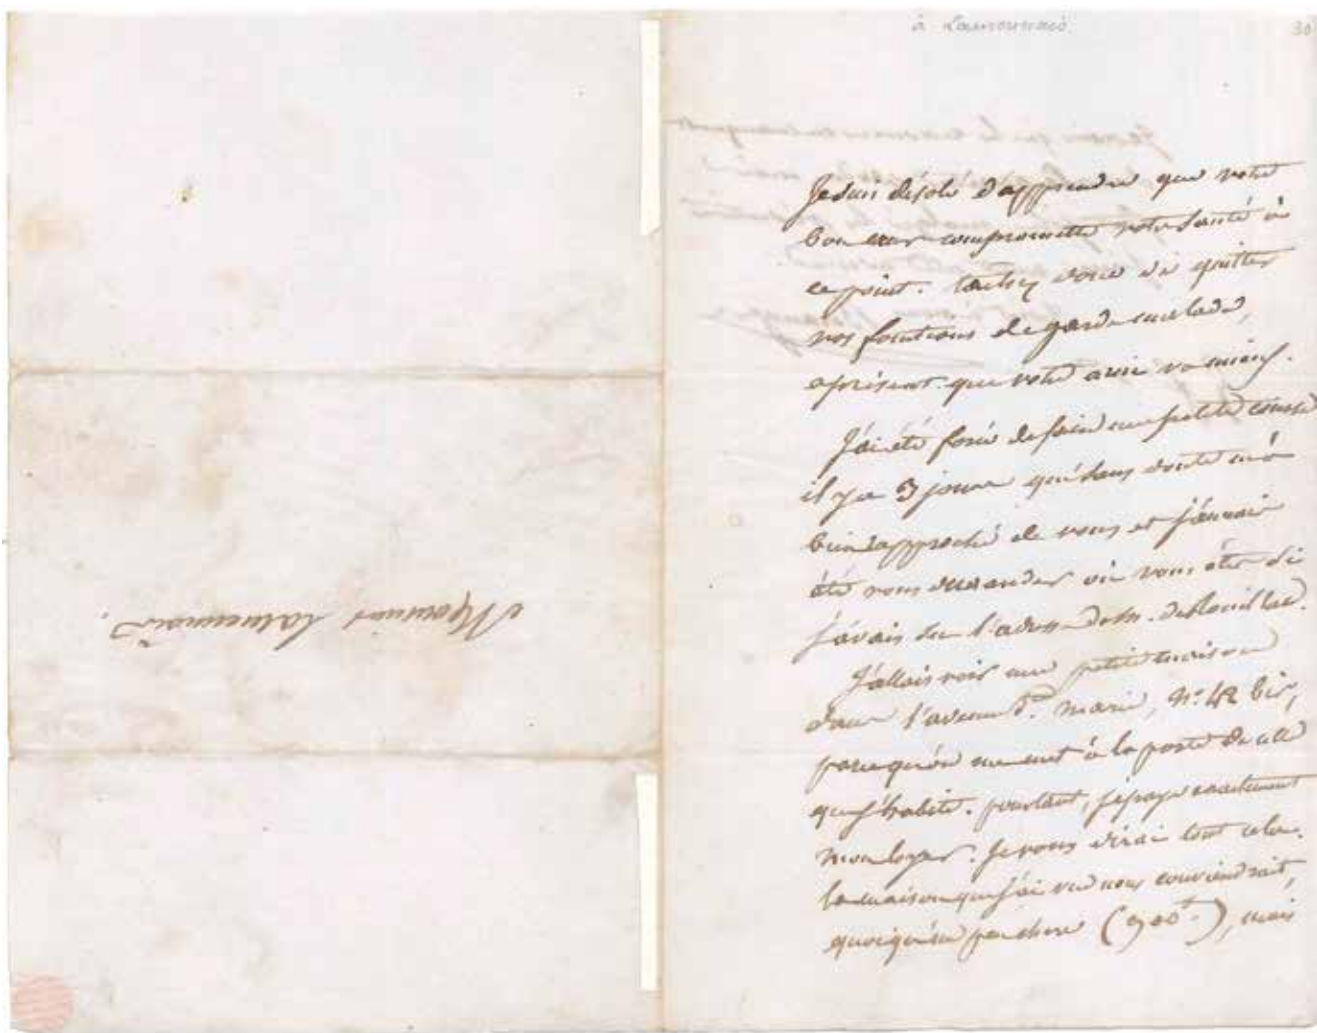 à Lamennais.
30
Monsieur Lamennais.
Je suis désolé d'apprendre que votre
bon cœur compromette votre santé à
ce point. tachez donc de quitter
vos fonctions de garde malade,
aprésent que votre amie va mieux.
J'ai été forcé de faire une petite course
il y a 3 jours qui sans doute m'a
bien rapproché de vous et j'aurais
été vous demander où vous êtes si
j'avais su l'adresse de M.
J'allais voir une petite maison
dans l'avenue Ste. Marie, No. 42 bis,
parcequ'on me met à la porte de celle
que j'habite. pourtant, je paye exactement
mon loyer. Je vous dirai tout cela.
la maison que j'ai vue nous conviendrait,
quoiqu'un peu chere (900f.), mais